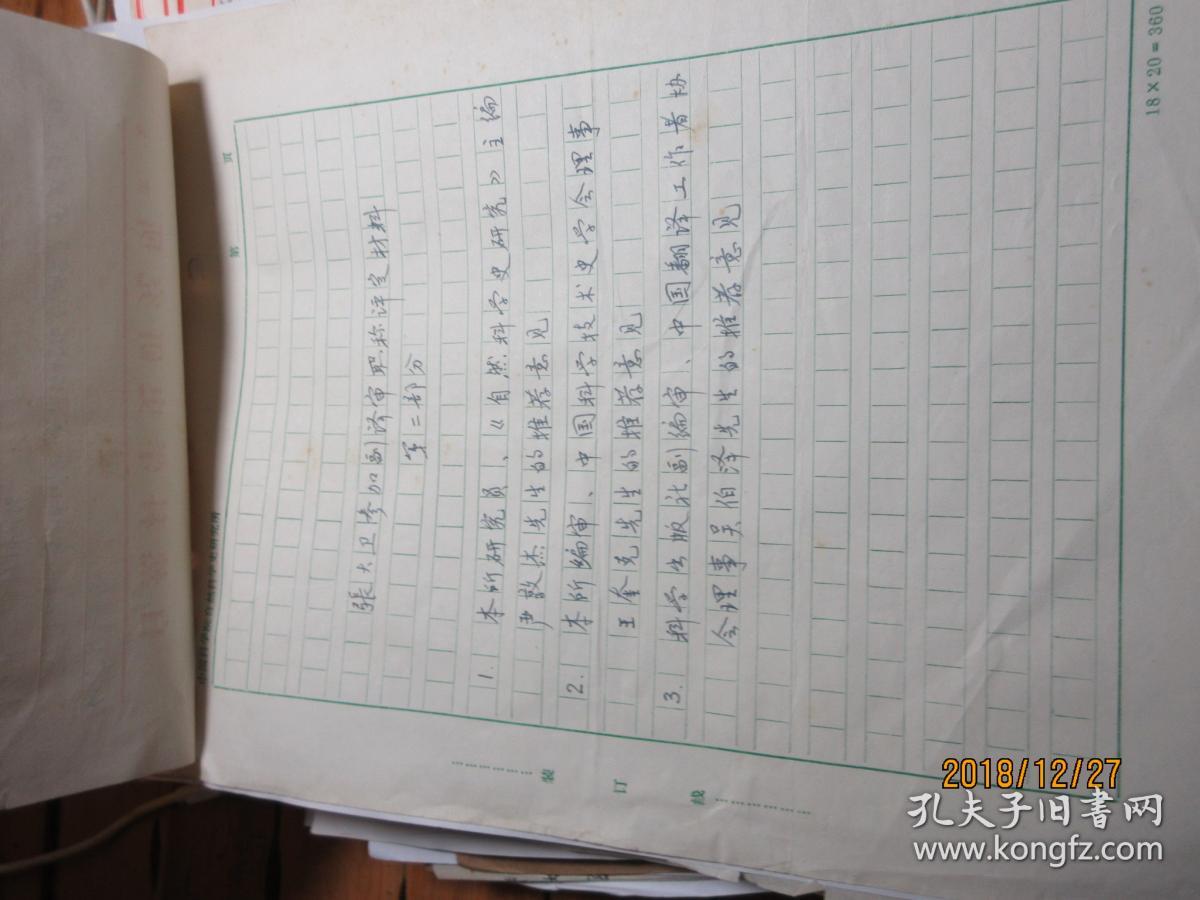 第 页
張大卫参加副译审职称评定材料
第二部分
1. 本所研究员、《自然科学史研究》主编
严敦杰先生的推荐意见
2. 本所编审、中国科学技术史学会理事
王奎克先生的推荐意见
3. 科学出版社副编审、中国翻译工作者协
会理事吴伯泽先生的推荐意见
装 订 线
18×20=360
2018/12/27
孔夫子旧书网
www.kongfz.com